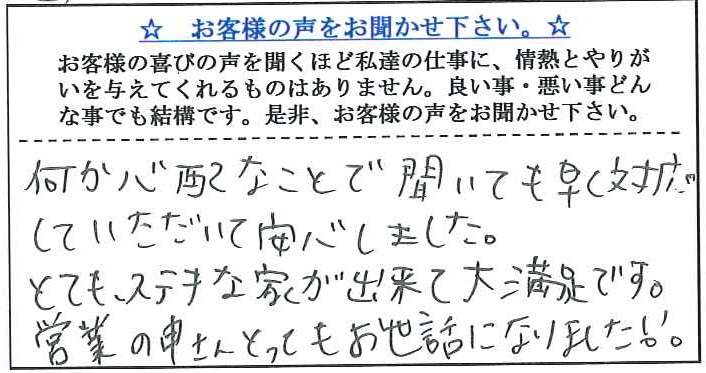 ☆ お客様の声をお聞かせ下さい。☆
お客様の喜びの声を聞くほど私達の仕事に、情熱とやりが
いを与えてくれるものはありません。良い事・悪い事どん
な事でも結構です。是非、お客様の声をお聞かせ下さい。
何か心配なことで聞いても早く対応
していただいて安心しました。
とても、ステキな家が出来て大満足です。
営業の申さんとってもお世話になりました!!。